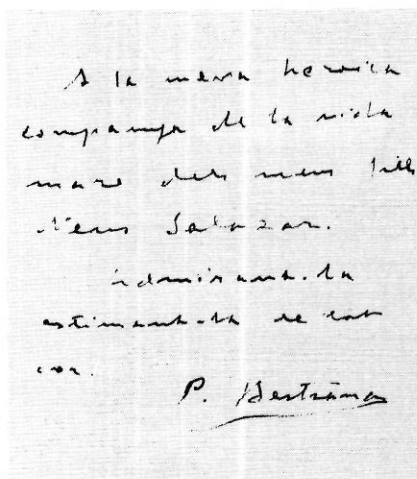 A la meva heroica
companya de la vida
mare dels meus fills
Neus Salazar.
Admirant-la
estimant-la de tot
cor.
P. Bestrama